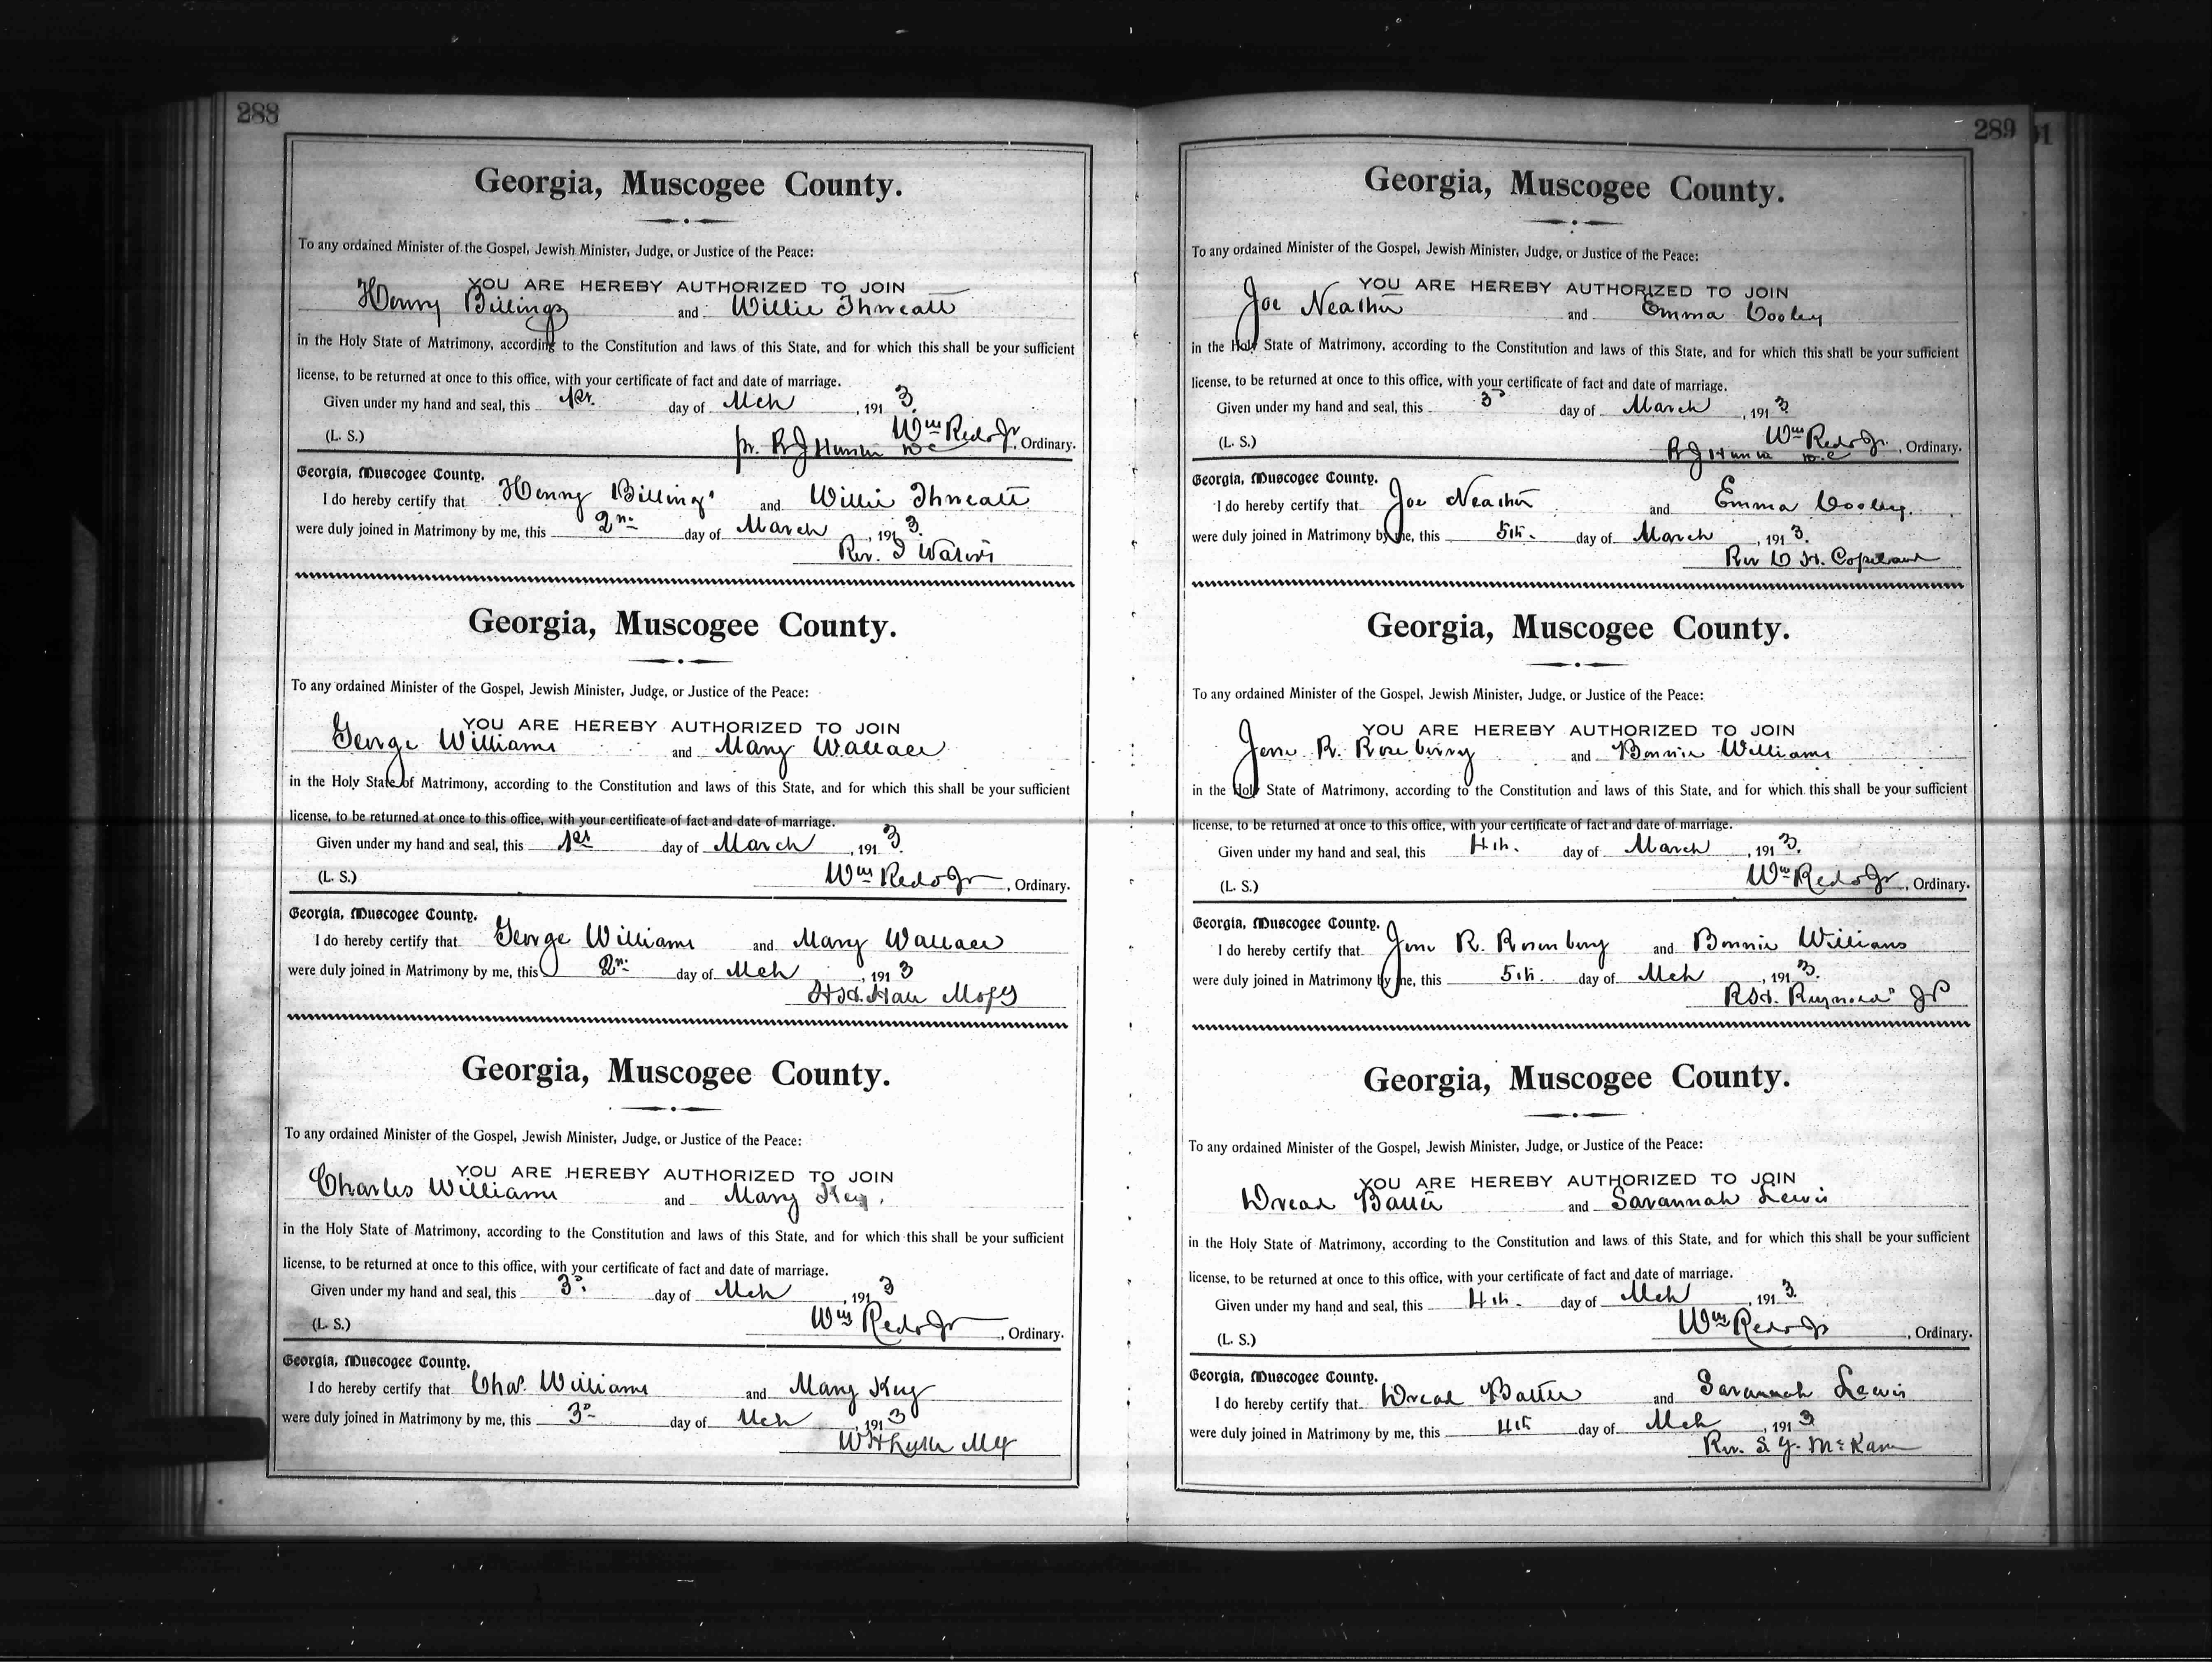 288
Georgia, Muscogee County.
To any ordained Minister of the Gospel, Jewish Minister, Judge, or Justice of the Peace:
YOU ARE HEREBY AUTHORIZED TO JOIN
Henry Billings and Willie Threatt
in the Holy State of Matrimony, according to the Constitution and laws of this State, and for which this shall be your sufficient
license, to be returned at once to this office, with your certificate of fact and date of marriage.
Given under my hand and seal, this 1st. day of Mch, 1913.
Wm Redd Jr.
(L. S.) pr. R J Hunter , Ordinary.
Georgia, Muscogee County.
I do hereby certify that Henry Billings and Willie Threatt
were duly joined in Matrimony by me, this 2nd day of March, 1913.
Rev.
Georgia, Muscogee County.
To any ordained Minister of the Gospel, Jewish Minister, Judge, or Justice of the Peace:
YOU ARE HEREBY AUTHORIZED TO JOIN
George Williams and Mary Wallace
in the Holy State of Matrimony, according to the Constitution and laws of this State, and for which this shall be your sufficient
license, to be returned at once to this office, with your certificate of fact and date of marriage.
Given under my hand and seal, this 1st day of March, 1913.
(L. S.) Wm Redd Jr, Ordinary.
Georgia, Muscogee County.
I do hereby certify that George Williams and Mary Wallace
were duly joined in Matrimony by me, this 2nd day of Mch, 1913
Georgia, Muscogee County.
To any ordained Minister of the Gospel, Jewish Minister, Judge, or Justice of the Peace:
YOU ARE HEREBY AUTHORIZED TO JOIN
Charles Williams and Mary Key.
in the Holy State of Matrimony, according to the Constitution and laws of this State, and for which this shall be your sufficient
license, to be returned at once to this office, with your certificate of fact and date of marriage.
Given under my hand and seal, this 3d. day of Mch, 1913
(L. S.) Wm Redd Jr, Ordinary.
Georgia, Muscogee County.
I do hereby certify that Chas. Williams and Mary Key
were duly joined in Matrimony by me, this 3d day of Mch, 1913
289
Georgia, Muscogee County.
To any ordained Minister of the Gospel, Jewish Minister, Judge, or Justice of the Peace:
YOU ARE HEREBY AUTHORIZED TO JOIN
Joe and Emma Cooley
in the Holy State of Matrimony, according to the Constitution and laws of this State, and for which this shall be your sufficient
license, to be returned at once to this office, with your certificate of fact and date of marriage.
Given under my hand and seal, this 3d day of March, 1913
Wm Redd Jr.
(L. S.) R J Hunter , Ordinary.
Georgia, Muscogee County.
I do hereby certify that Joe and Emma Cooley.
were duly joined in Matrimony by me, this 5th. day of March, 1913.
Rev Copeland
Georgia, Muscogee County.
To any ordained Minister of the Gospel, Jewish Minister, Judge, or Justice of the Peace:
YOU ARE HEREBY AUTHORIZED TO JOIN
Jesse R. Roseberry and Bonnie Williams
in the Holy State of Matrimony, according to the Constitution and laws of this State, and for which this shall be your sufficient
license, to be returned at once to this office, with your certificate of fact and date of marriage.
Given under my hand and seal, this 4th. day of March, 1913.
(L. S.) Wm Redd Jr, Ordinary.
Georgia, Muscogee County.
I do hereby certify that Jesse R. Rosenberry and Bonnie Williams
were duly joined in Matrimony by me, this 5th. day of Mch, 1913.
Reynolds JP
Georgia, Muscogee County.
To any ordained Minister of the Gospel, Jewish Minister, Judge, or Justice of the Peace:
YOU ARE HEREBY AUTHORIZED TO JOIN
Dread Battle and Savannah Lewis
in the Holy State of Matrimony, according to the Constitution and laws of this State, and for which this shall be your sufficient
license, to be returned at once to this office, with your certificate of fact and date of marriage.
Given under my hand and seal, this 4th. day of Mch, 1913.
(L. S.) Wm Redd Jr, Ordinary.
Georgia, Muscogee County.
I do hereby certify that Dread Battle and Savannah Lewis
were duly joined in Matrimony by me, this 4th day of Mch, 1913
Rev. S. Y. McKane